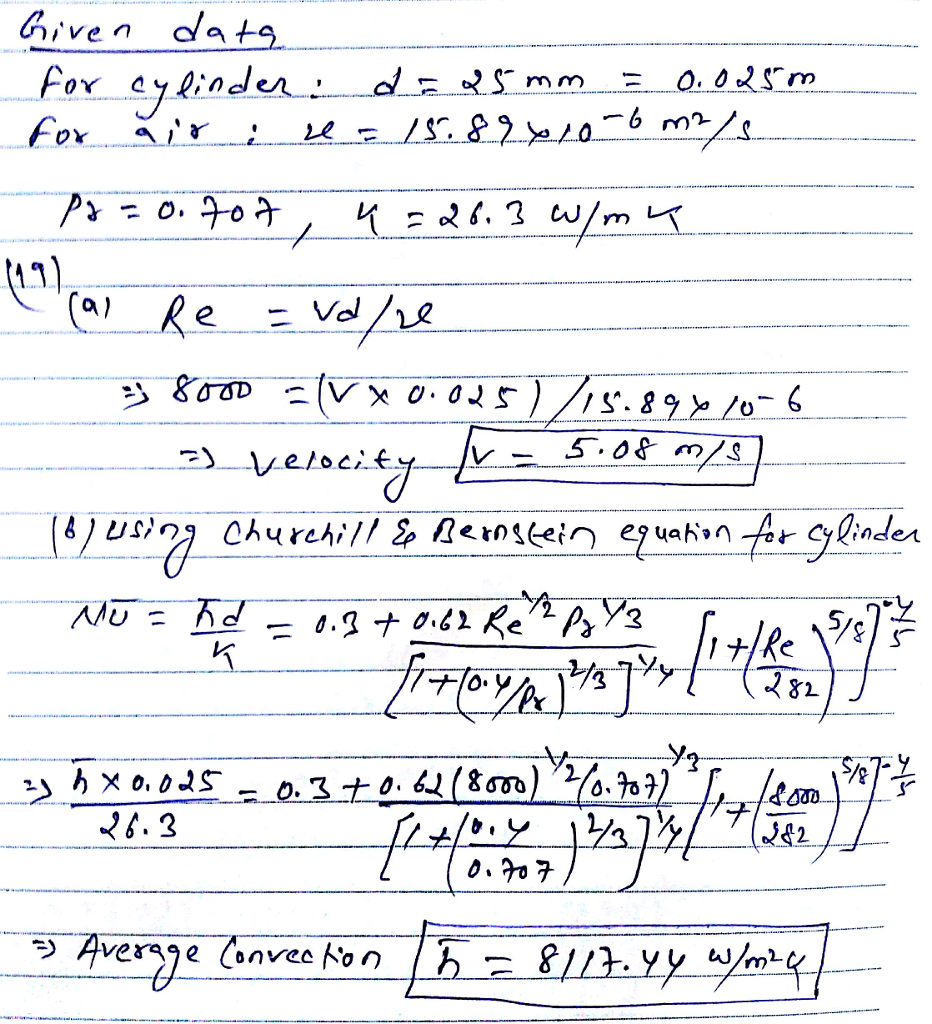 Given data
for cylinder : d = 25 mm = 0.025 m
for air : ν = 15.89 × 10⁻⁶ m²/s
Pr = 0.707 , K = 26.3 W/m K
(19)
(a) Re = Vd/ν
⇒ 8000 = (V × 0.025) / 15.89 × 10⁻⁶
⇒ Velocity V = 5.08 m/s
(b) using Churchill & Bernstein equation for cylinder
N̅u̅ = h̅d/K = 0.3 + 0.62 Re^1/2 Pr^1/3 / [1+(0.4/Pr)^2/3]^1/4 [1+(Re/282)^5/8]^-4/5
⇒ h̅ × 0.025 / 26.3 = 0.3 + 0.62 (8000)^1/2 (0.707)^1/3 / [1+(0.4/0.707)^2/3]^1/4 [1+(8000/282)^5/8]^-4/5
⇒ Average Convection h̅ = 8117.44 W/m²K